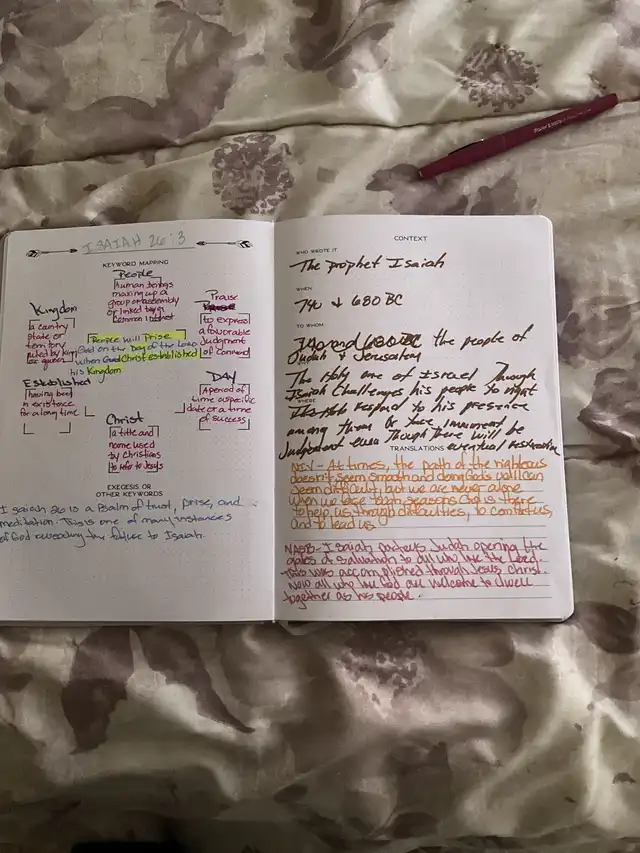 ISAIAH 26:3
KEYWORD MAPPING
People
human beings
making up a
group or assembly
or linked by a
common interest
Praise
to express
a favorable
Judgment
of commend
Kingdom
a country
state or
territory
ruled by king
or queen
People will Prise
God on the Day of the Lord
when Christ established
his Kingdom
Established
having been
in existance
for a long time
DAY
A period of
time a specific
date or a time
of success
Christ
a title and
name used
by Christians
to refer to Jesus
EXEGESIS OR
OTHER KEYWORDS
Isaiah 26 is a Psalm of trust, prise, and
meditation. This is one of many instances
of God revealing the future to Isaiah.
CONTEXT
WHO WROTE IT
The prophet Isaiah
WHEN
740 & 680 BC
TO WHOM
the people of
Judah & Jerusalem
The Holy one of Israel Through
Isaiah Challenges his people to right
WHERE
respond to his presence
among them or face imminent
Judgment even Though There will be
eventual restoration
TRANSLATIONS
NIV - At times, the path of the righteous
doesn't seem smooth and doing Gods will can
seem difficult, but we are never alone
when we face tough seasons God is there
to help us through difficulties, to comfort us,
and to lead us
NASB - Isaiah Judah opening the
gates of salvation to all who the Lord
This was accomplished through Jesus Christ
Now all who God are welcome to dwell
together as his people.